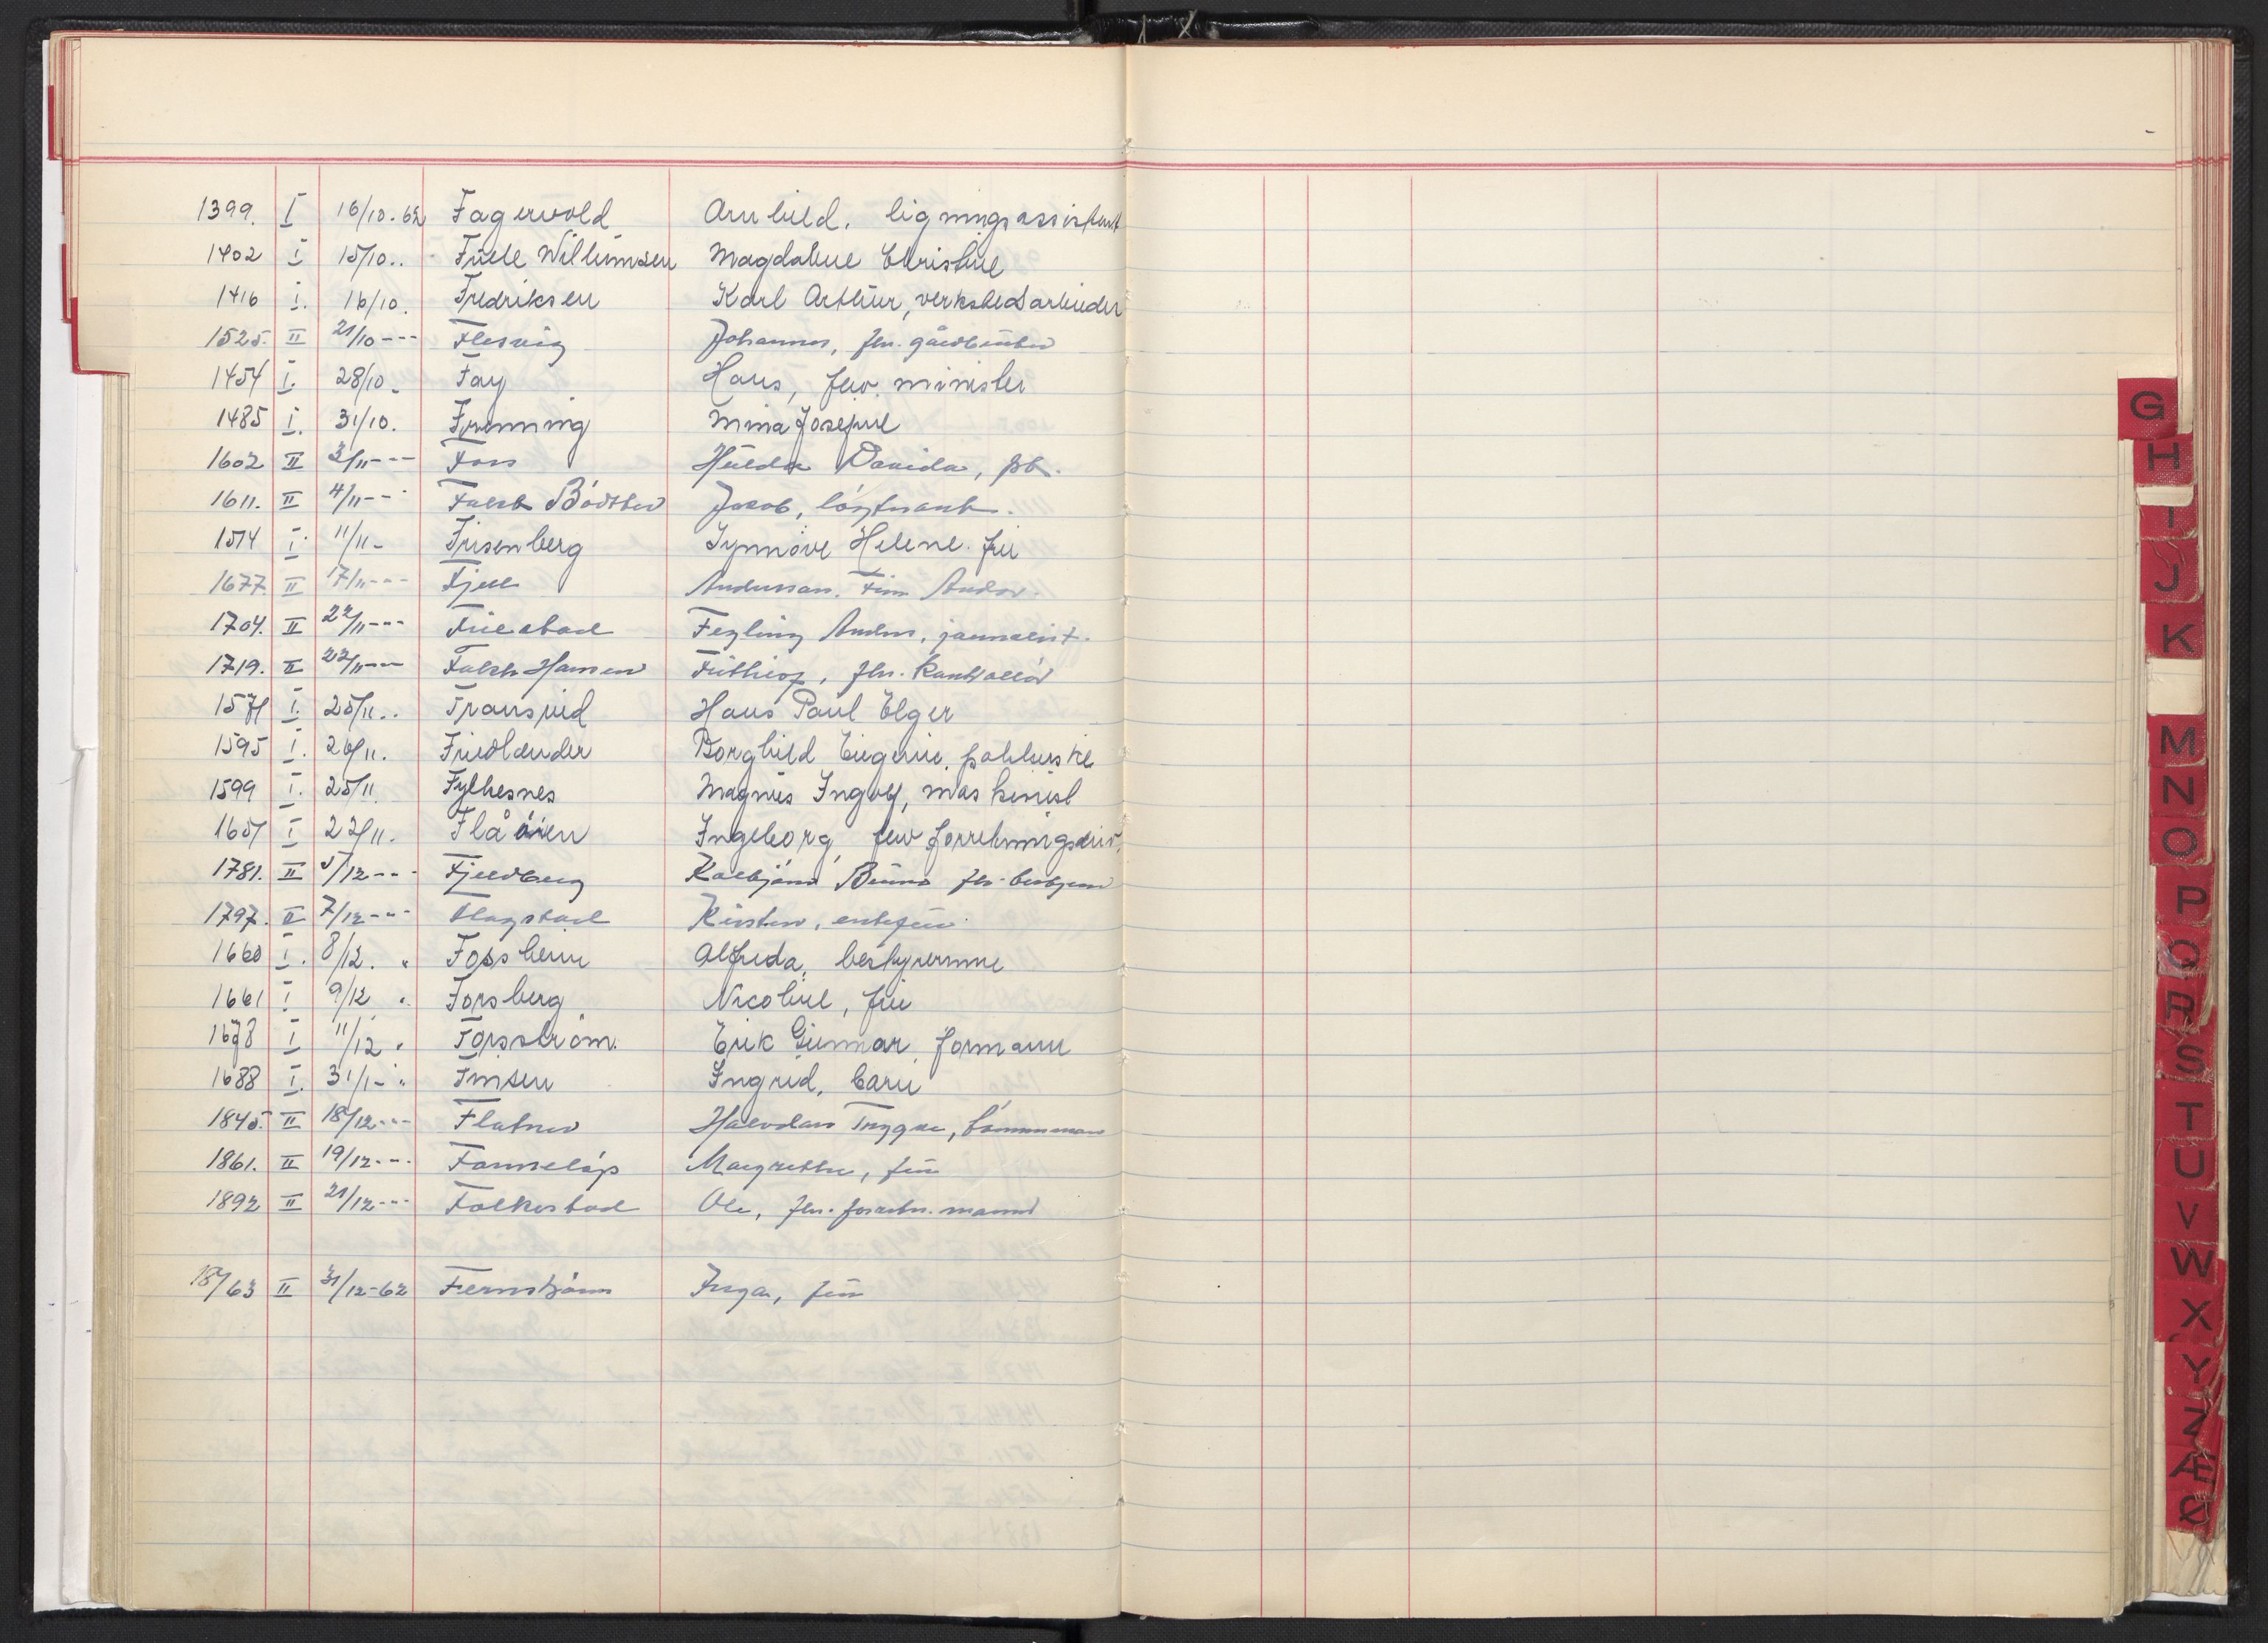 1399. I 16/10.62 Fagervold Arnhild. ligningsassistent
1402 I 15/10.. Friele Willumsen Magdalene Christine
1416 I. 16/10. Fredriksen Karl Arthur, verkstedarbeider
1525. II 21/10--- Flesvig Johannes, fhv. gårdbruker
1454 I. 28/10. Fay Hans, fhv. minister
1485 I. 31/10. Frønning Mina Josefine
1602 II 3/11--- Foss Hulda Davida, frk.
1611. II 4/11--- Falch Bödtker Jacob, löytnant.
1514 I 11/11- Frisenberg Synnøve Helene. fru
1677 II 17/11--- Fjell Andersson. Finn Andor.
1704. II 22/11--- Fegling Anders, journalist.
1719. II 22/11--- Falch Hansen Frithjof, fhv. kontrollör
I. 25/11.. Hans Paul Elger
1595 I. 26/11. Friedlænder Borghild Eugenie.
1599 I. 25/11 Fylkesnes Magnus Ingolf, maskinist
I 22/11. Flåøien Ingeborg, fhv forretningsdriv.
1781. II 5/12--- Fjeldberg Kolbjörn Bruno
1797. II 7/12--- Flagstad Kirsten, enkefru
1660 I. 8/12. " Fossheim Alfrida, bestyrerinne
1661 I 9/12 " Forsberg Nicoline, fru
1678 I 11/12 " Forsström. Erik Gunnar, formann
1688 I. 31/1- " Ingrid,
1845. II 18/12--- Flatner Halvdan Trygve,
1861. II 19/12--- Fanneløp Margrethe, fru
1892 II 21/12--- Folkestad Ole, fhv. mann
18/63 II 31/12-62 Fernström Inga, fru
G
H
I
J
K
M
N
O
P
Q
R
S
T
U
V
W
X
Y
Z
Æ
Ø